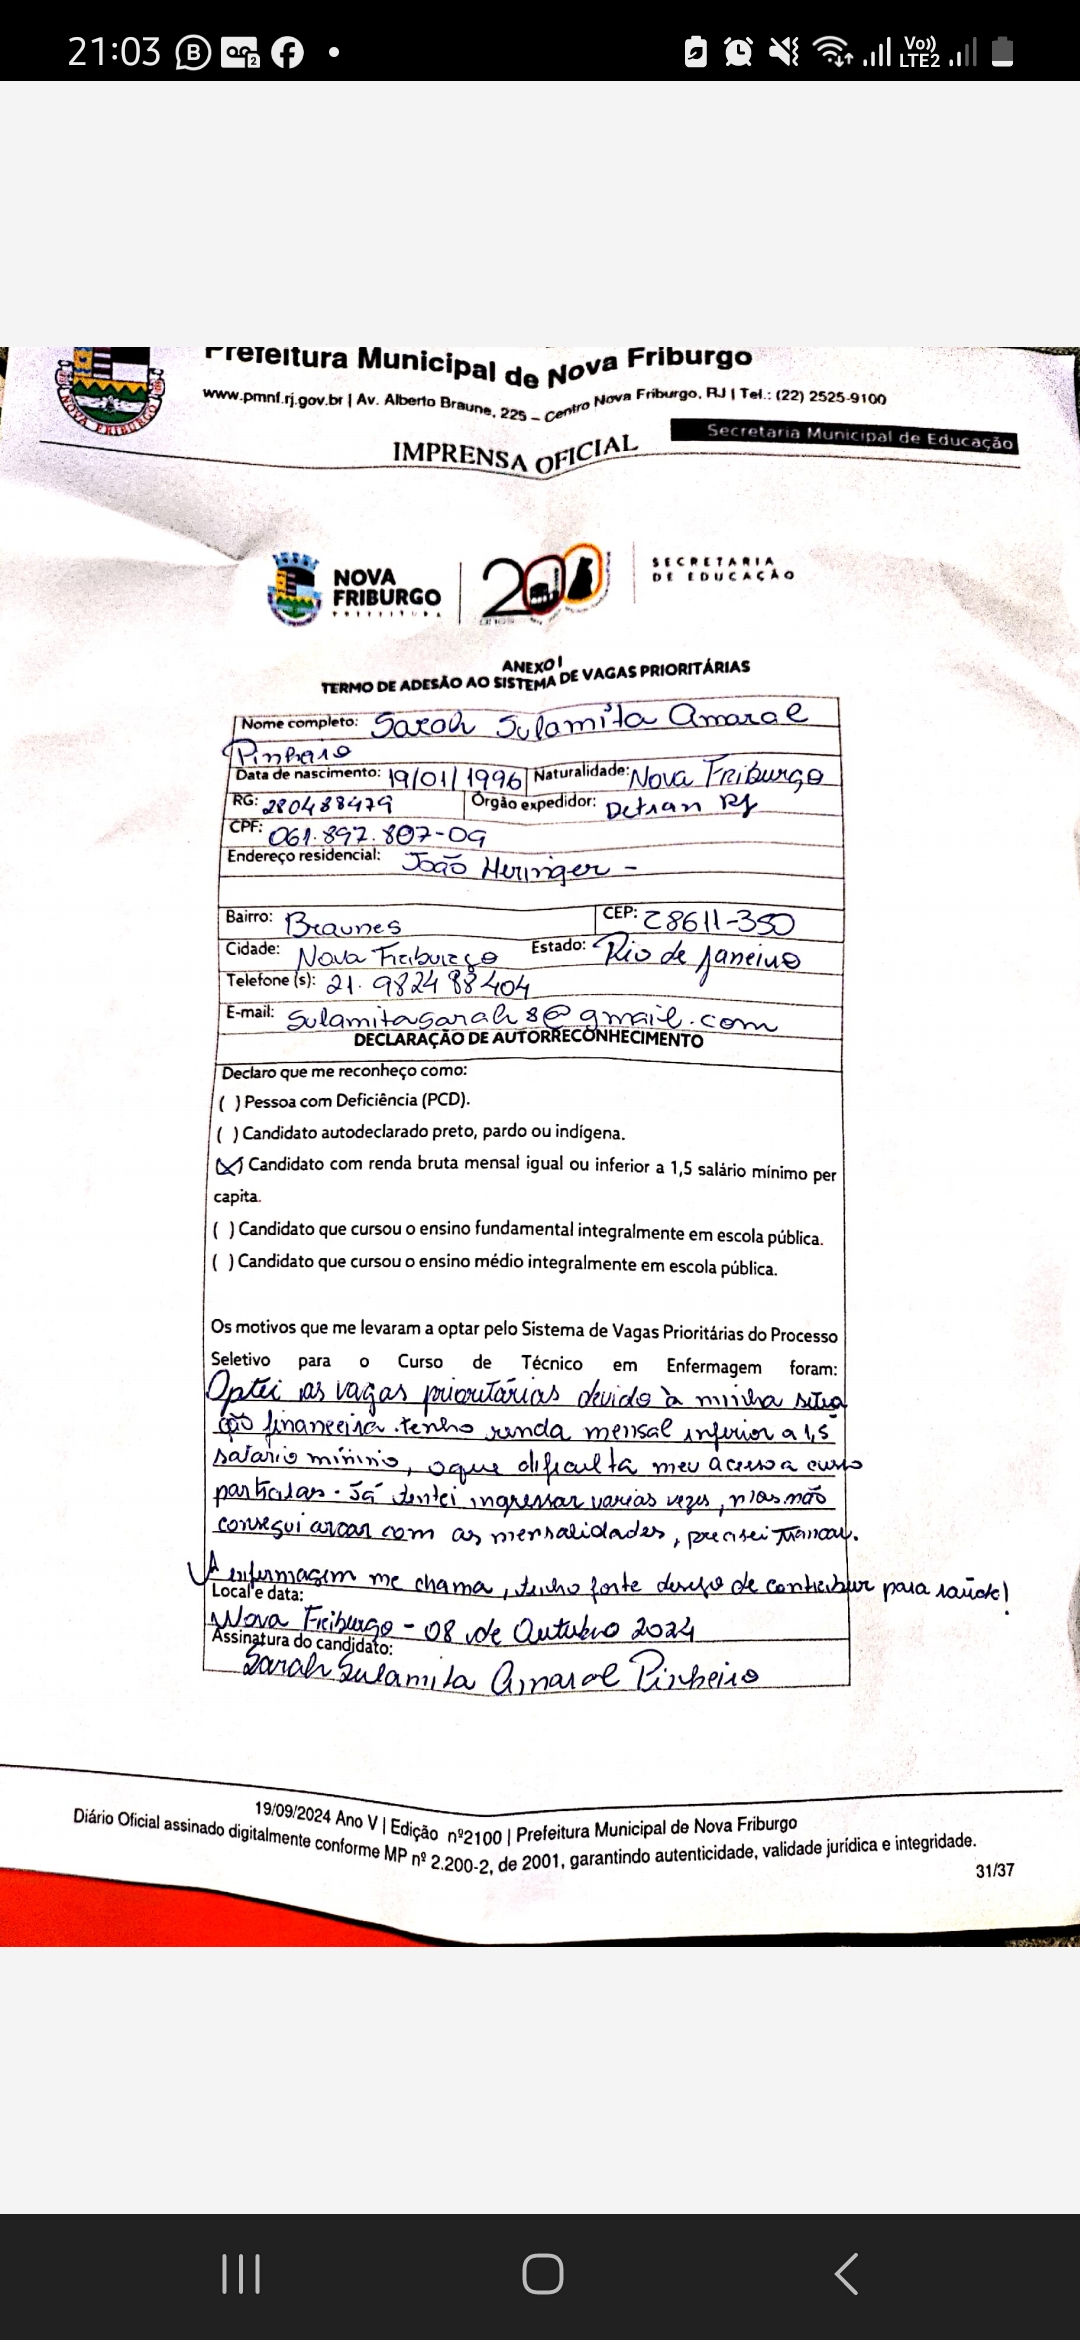 21:03
Vo))
LTE2
Prefeitura Municipal de Nova Friburgo
www.pmnf.rj.gov.br | Av. Alberto Braune, 225 – Centro Nova Friburgo, RJ | Tel.: (22) 2525-9100
Secretaria Municipal de Educação
IMPRENSA OFICIAL
NOVA FRIBURGO
NOVA
FRIBURGO
PREFEITURA
200
anos
SECRETARIA
DE EDUCAÇÃO
ANEXO I
TERMO DE ADESÃO AO SISTEMA DE VAGAS PRIORITÁRIAS
Nome completo: Sarah Sulamita Amaral
Pinheiro
Data de nascimento: 19/01/1996 Naturalidade: Nova Friburgo
RG: 280488479 Órgão expedidor: Detran RJ
CPF: 061.897.807-09
Endereço residencial: João Heringer -
Bairro: Braunes CEP: 28611-350
Cidade: Nova Friburgo Estado: Rio de Janeiro
Telefone (s): 21. 982488404
E-mail: sulamitasarah8@gmail.com
DECLARAÇÃO DE AUTORRECONHECIMENTO
Declaro que me reconheço como:
( ) Pessoa com Deficiência (PCD).
( ) Candidato autodeclarado preto, pardo ou indígena.
(X) Candidato com renda bruta mensal igual ou inferior a 1,5 salário mínimo per
capita.
( ) Candidato que cursou o ensino fundamental integralmente em escola pública.
( ) Candidato que cursou o ensino médio integralmente em escola pública.
Os motivos que me levaram a optar pelo Sistema de Vagas Prioritárias do Processo
Seletivo para o Curso de Técnico em Enfermagem foram:
Optei as vagas prioritárias devido à minha situa
ção financeira. tenho renda mensal inferior a 1,5
salário mínino, oque dificulta meu acesso a curso
particular. Já tentei ingressar varias vezes, mas não
consegui arcar com as mensalidades, precisei trancar.
A enfermagem me chama, tenho forte desejo de contribuir para saúde!
Local e data:
Nova Friburgo - 08 de Outubro 2024
Assinatura do candidato:
Sarah Sulamita Amaral Pinheiro
19/09/2024 Ano V | Edição nº2100 | Prefeitura Municipal de Nova Friburgo
Diário Oficial assinado digitalmente conforme MP nº 2.200-2, de 2001, garantindo autenticidade, validade jurídica e integridade.
31/37